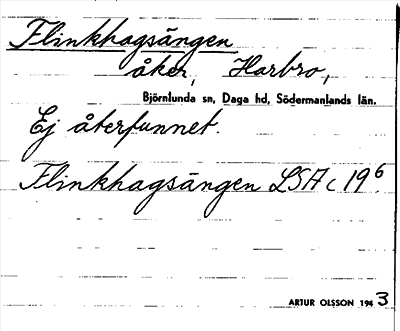 Flinkhagsängen
åker, Harbro,
Björnlunda sn, Daga hd, Södermanlands län.
Ej återfunnet.
Flinkhagsängen LSA C 19⁶
ARTUR OLSSON 1943